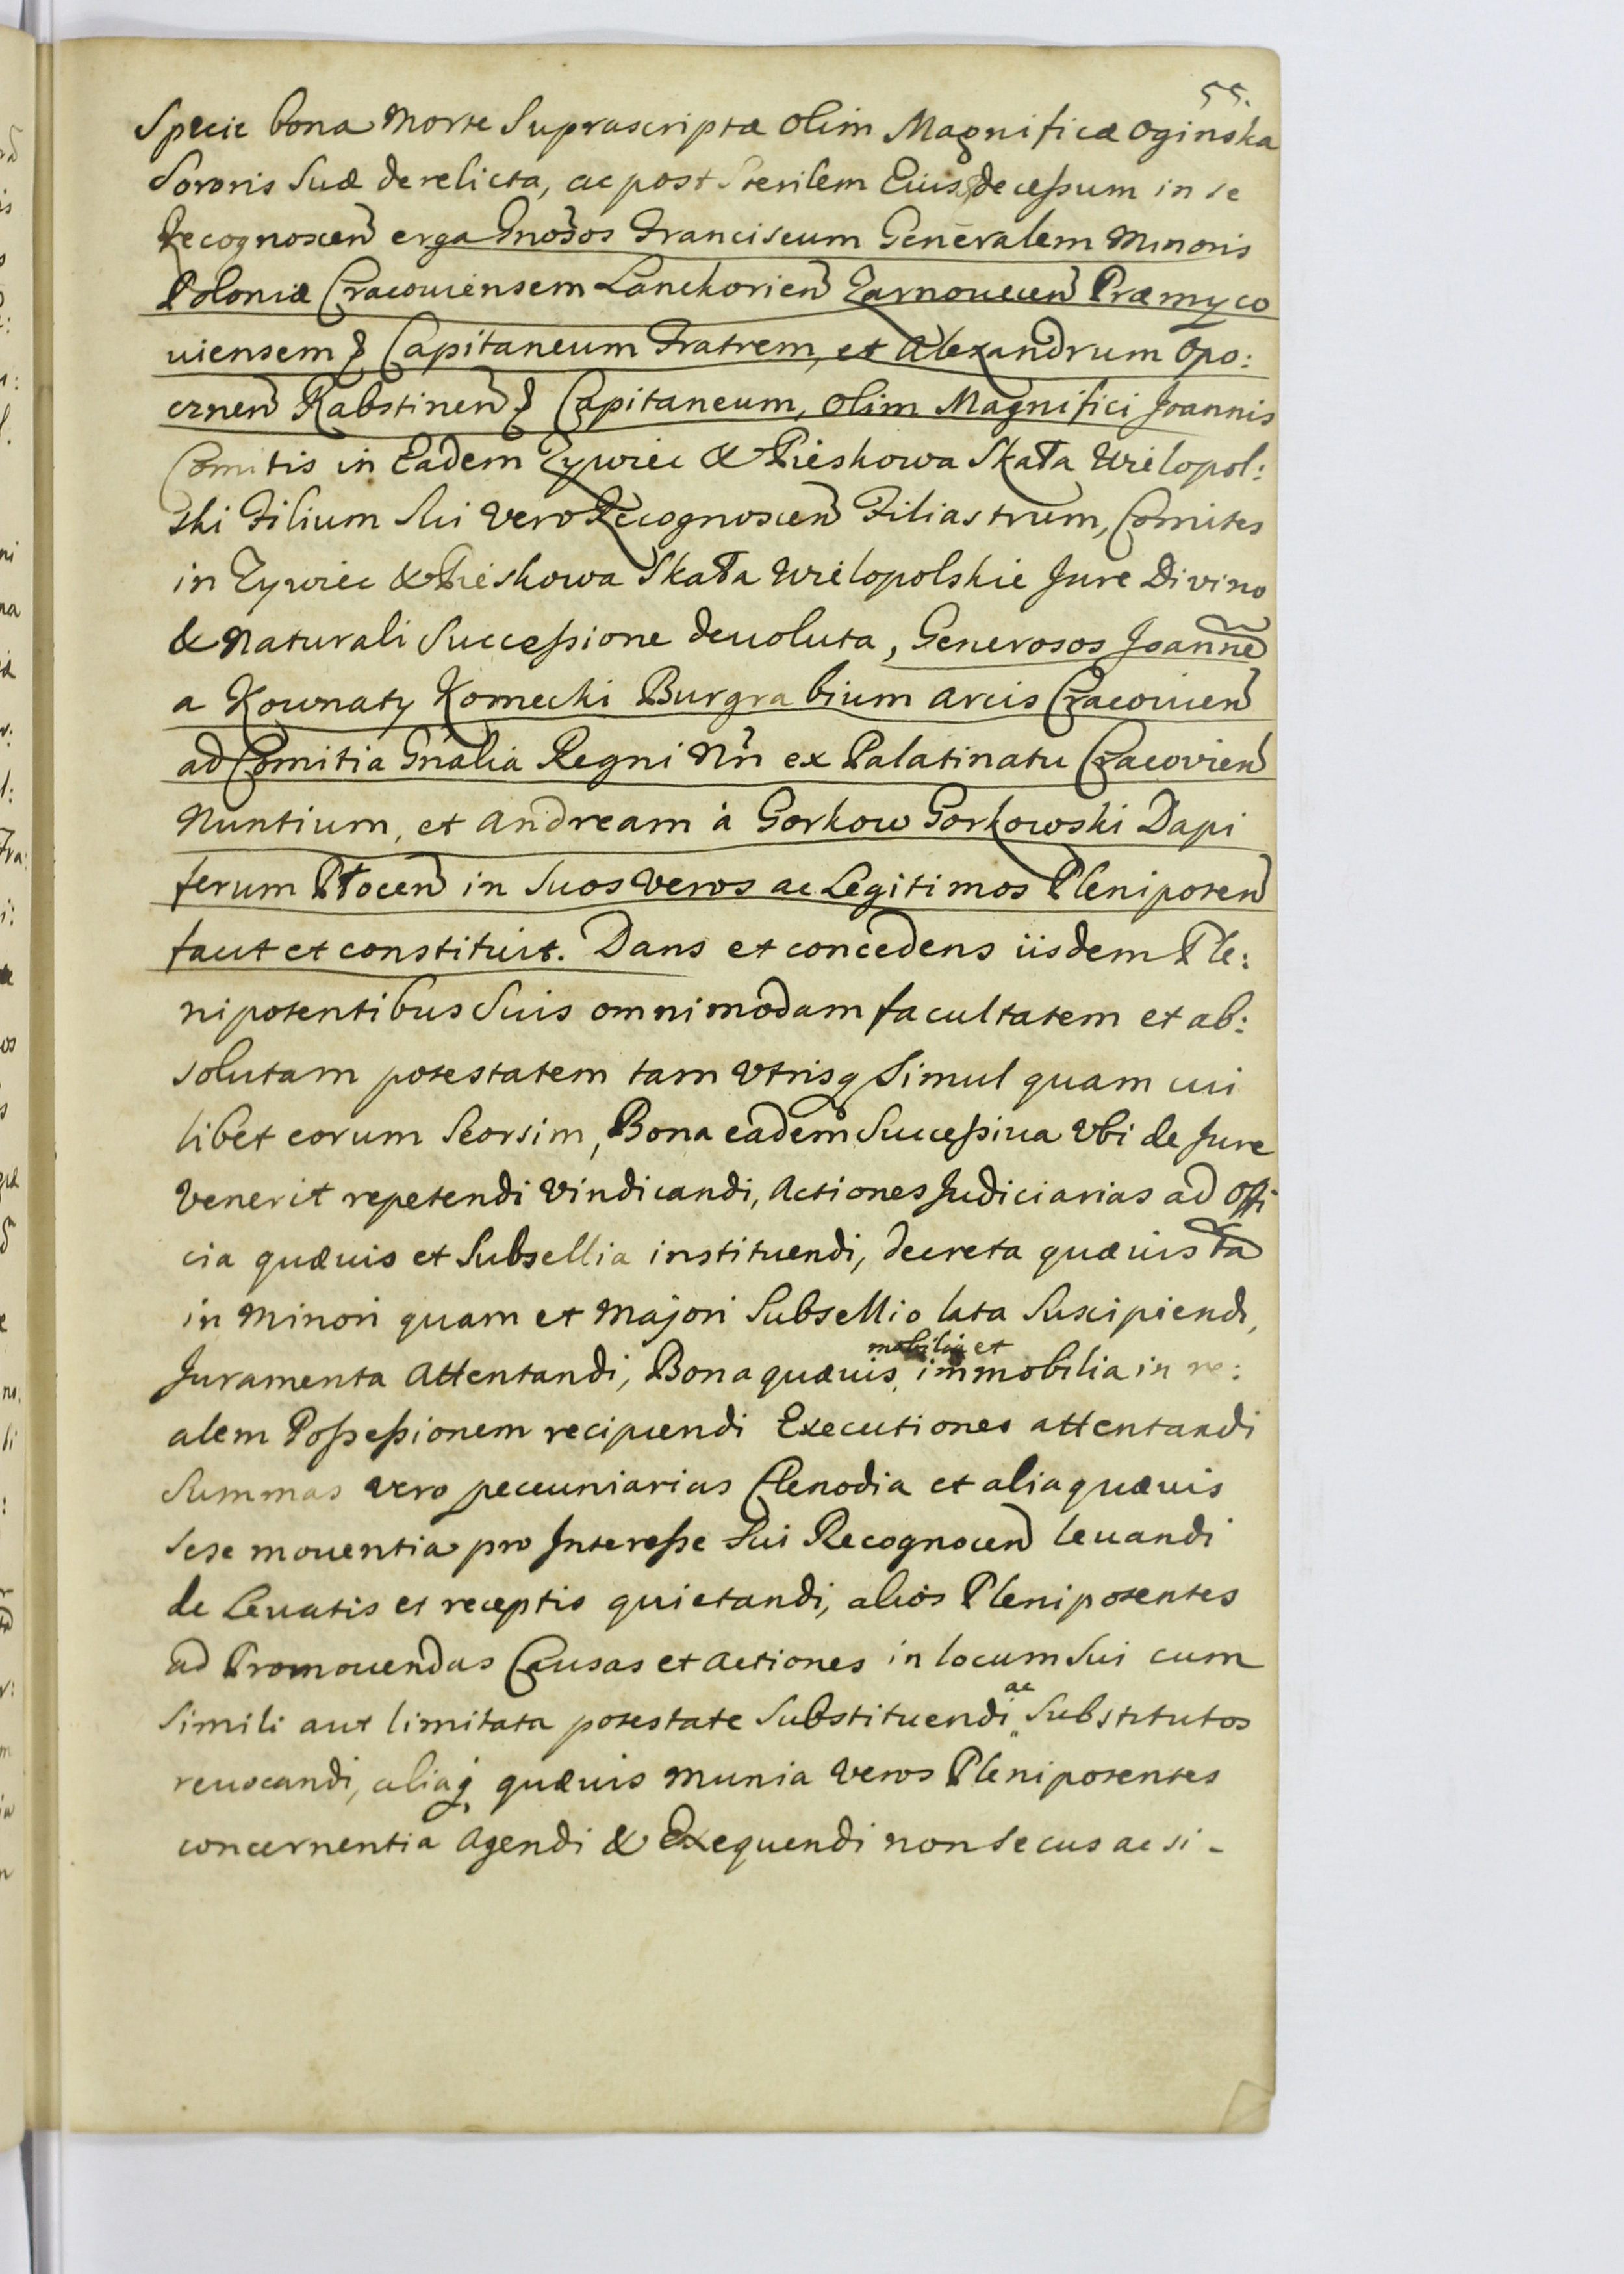 55.
Specie bona Morte Suprascriptæ olim Magnificæ Oginska
Sororis Suæ derelicta, ac post Sterilem Eius decessum in se
Recognoscen erga Gnosos Franciscum Generalem Minoris
Poloniæ Cracouiensem Lanckorien Zarnouecen Præmyco
uiensem & Capitaneum Fratrem, et Alexandrum Opo:
cznen Rabstinen & Capitaneum, olim Magnifici Joannis
Comitis in Eadem Zywiec & Pieskowa Skała Wielopol:
ski Filium Sui vero Recognoscen Filiastrum, Comites
in Zywiec & Pieskowa Skała Wielopolskie Jure Divino
& Naturali Successione deuoluta, Generosos Joanne
a Kownaty Komecki Burgrabium Arcis Cracouien
ad Comitia Gnalia Regni Nn ex Palatinatu Cracovien
Nuntium, et Andream à Gorkow Gorkowski Dapi
ferum Płocen in Suos Veros ac Legitimos Plenipoten
facit et constituit. Dans et concedens iisdem Ple:
nipotentibus Suis omnimodam facultatem et ab:
solutam potestatem tam Vtrisq Simul quam cui
libet eorum Seorsim, Bona eadem Successiua Vbi de Jure
Venerit repetendi Vindicandi, Actiones Judiciarias ad Offi
cia quæuis et Subsellia instituendi, decreta quæuis ta
in Minori quam et Majori Subsellio lata Suscipiendi,
Juramenta Attentandi, Bona quæuis mobilia et immobilia in re:
alem Possessionem recipiendi Executiones attentandi
Summas vero pecuniarias Clenodia et alia quæuis
sese mouentia pro Interesse Sui Recognocen leuandi
de Leuatis et receptis quietandi, alios Plenipotentes
ad Promouendas Causas et Actiones in locum Sui cum
Simili aut limitata potestate Substituendi ac Substitutos
reuocandi, aliaq quæuis Munia Veros Plenipotentes
concernentia Agendi & Exequendi non Secus ac si -